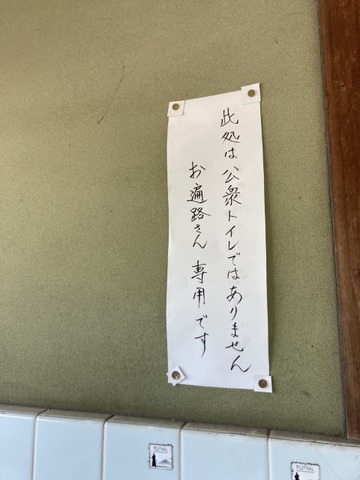 此処は公衆トイレではありません
お遍路さん専用です